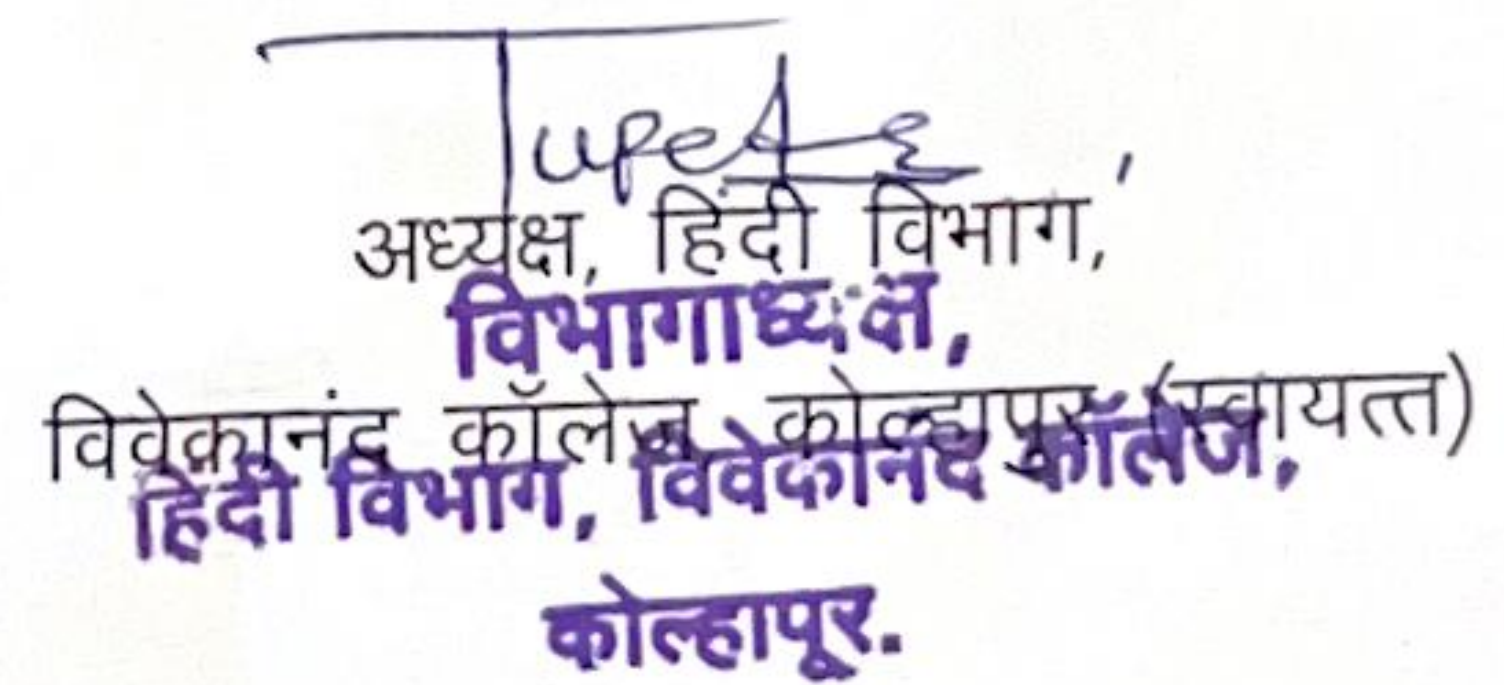 अध्यक्ष, हिंदी विभाग,
विभागाध्यक्ष,
विवेकानंद कॉलेज, कोल्हापुर (स्वायत्त)
हिंदी विभाग, विवेकानंद कॉलेज,
कोल्हापूर.